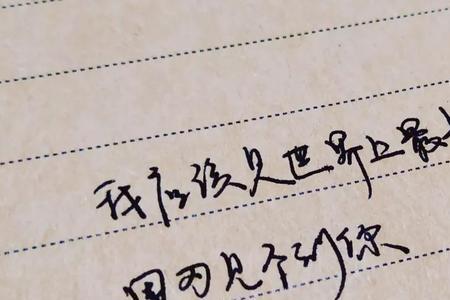 我应该见世界上最
因为见不到你